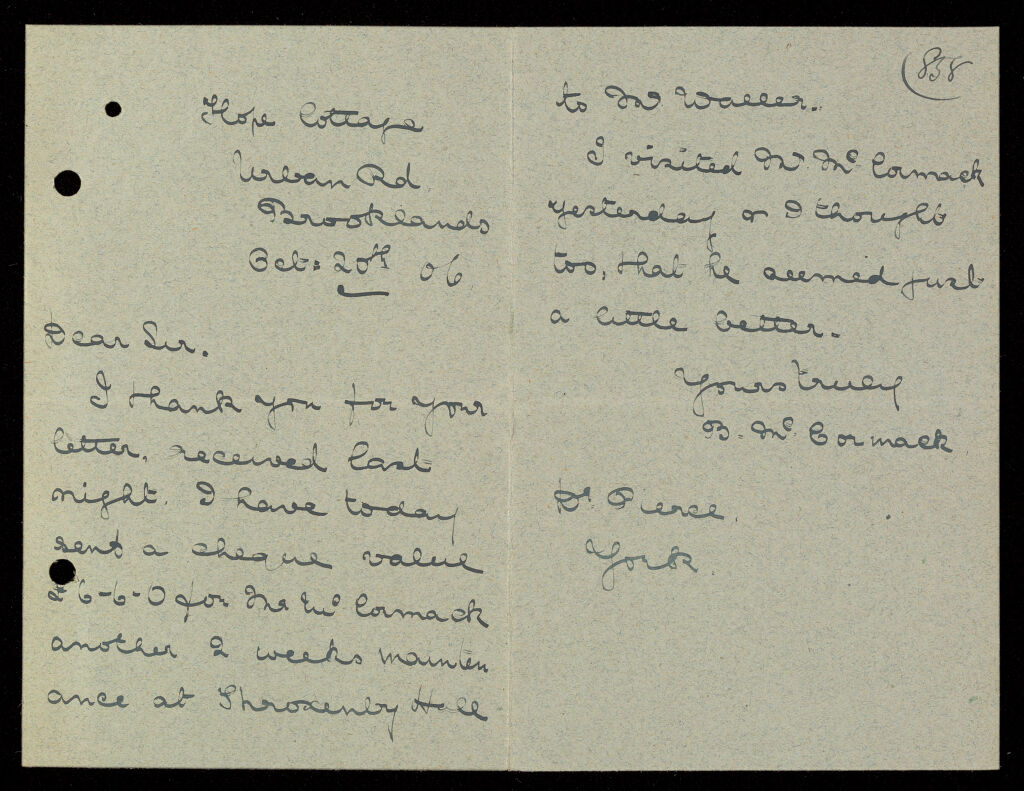 Hope Cottage
Urban Rd
Brooklands
Oct: 20th 06
Dear Sir.
I thank you for your
letter, received last
night. I have today
sent a cheque value
£6-6-0 for Mr McCormack
another 2 weeks mainten
ance at Throxenby Hall
858
to Mr Waller.
I visited Mr McCormack
yesterday & I thought
too, that he seemed just
a little better.
Yours truly
B. McCormack
Dr Pierce.
York